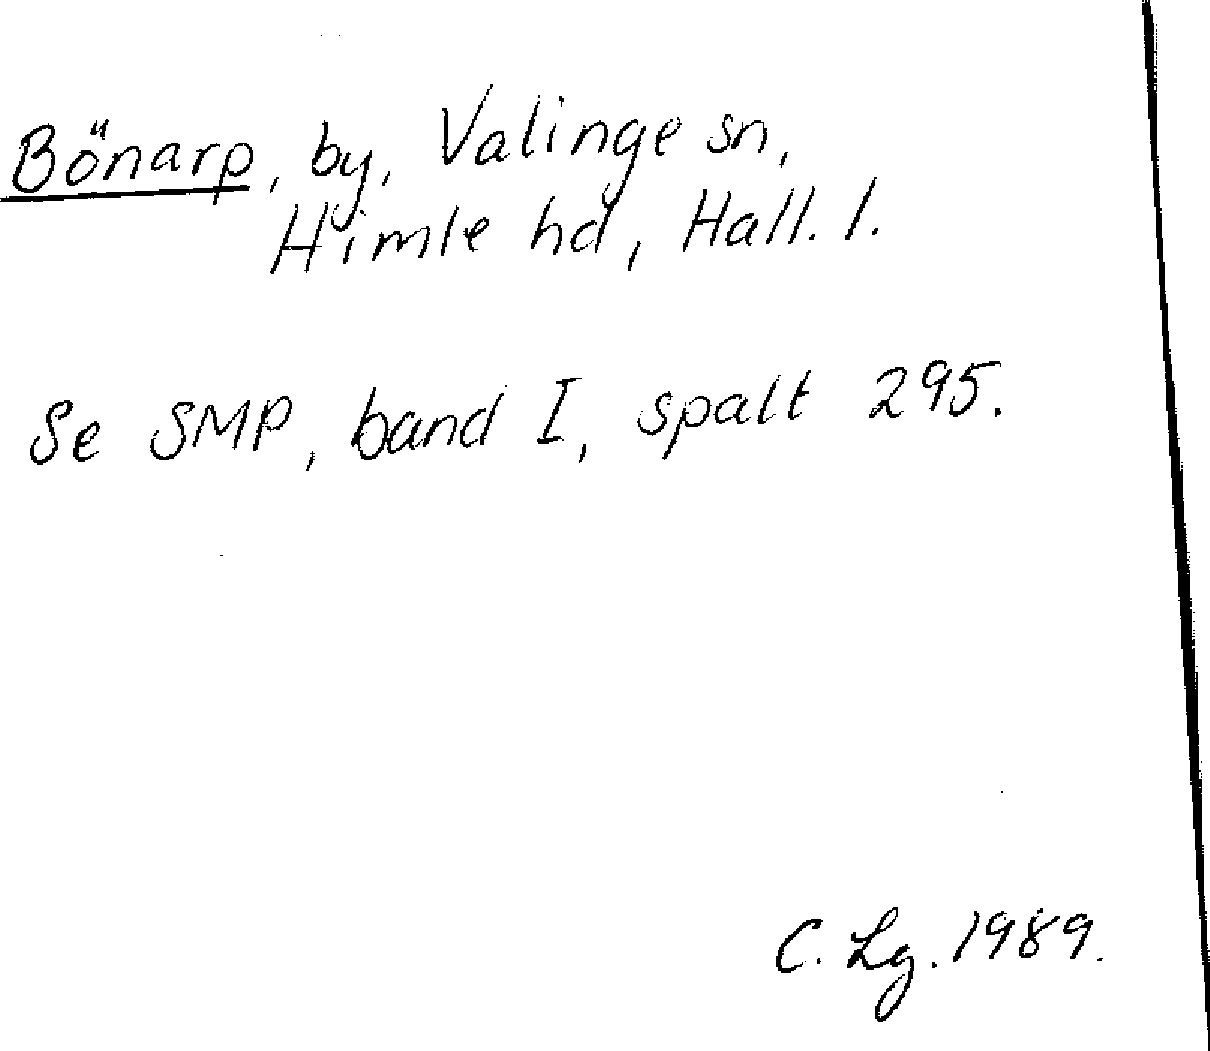 Bönarp, by, Valinge sn,
Himle hd, Hall. l.
Se SMP, band I, spalt 295.
C. Lg. 1989.